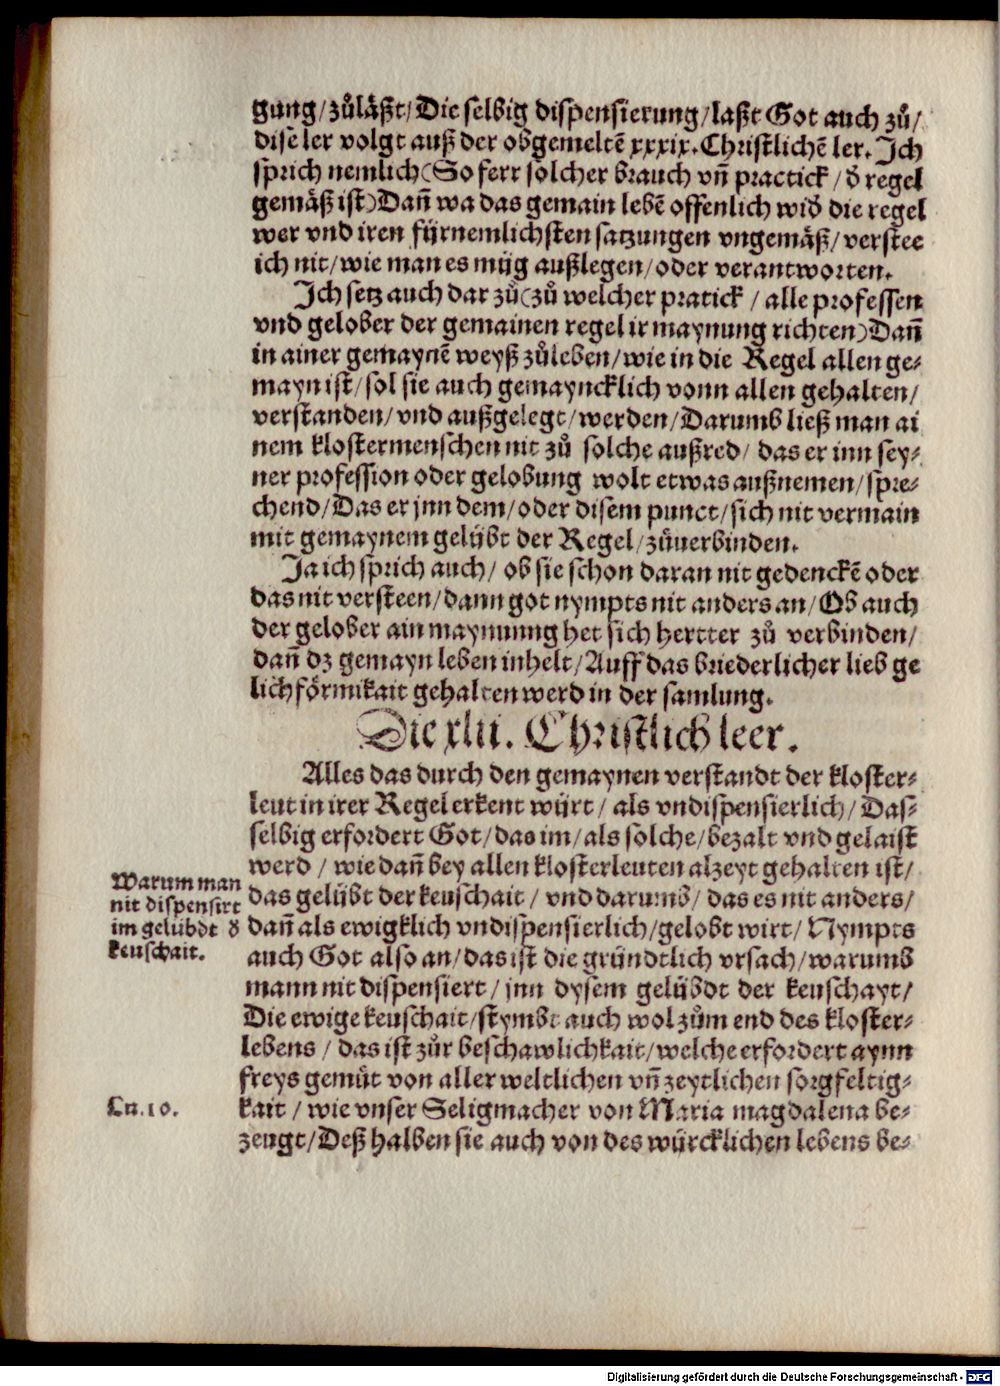 gung/zůläßt/Die selbig dispensierung/laßt Got auch zů/
dise ler volgt auß der obgemeltē xxxix. Christlichē ler. Ich
sprich nemlich(So ferr solcher brauch vn̄ practick/ď regel
gemäß ist)Dan̄ wa das gemain lebē offenlich wiď die regel
wer vnd iren fürnemlichsten satzungen vngemäß/verstee
ich nit/wie man es müg außlegen/oder verantworten.
Ich setz auch dar zů(zů welcher pratick/alle professen
vnd gelober der gemainen regel ir maynung richten)Dan̄
in ainer gemaynē weyß zůleben/wie in die Regel allen ge-
mayn ist/sol sie auch gemayncklich vonn allen gehalten/
verstanden/vnd außgelegt/werden/Darumb ließ man ai
nem klostermenschen nit zů solche außred/das er inn sey-
ner profession oder gelobung wolt etwas außnemen/spre-
chend/Das er jnn dem/oder disem punct/sich nit vermain
mit gemaynem gelübt der Regel/zůuerbinden.
Ja ich sprich auch/ob sie schon daran nit gedenckē oder
das nit versteen/dann got nympts nit anders an/Ob auch
der gelober ain maynung het sich hertter zů verbinden/
dan̄ dz gemayn leben inhelt/Auff das briederlicher lieb ge
lichförmikait gehalten werd in der samlung.
Die xlii. Christlich leer.
Alles das durch den gemaynen verstandt der kloster-
leut in irer Regel erkent würt/als vndispensierlich/Das-
selbig erfordert Got/das im/als solche/bezalt vnd gelaist
werd/wie dan̄ bey allen klosterleuten alzeyt gehalten ist/
das gelübt der keuschait/vnd darumb/das es nit anders/
dan̄ als ewigklich vndispensierlich/gelobt wirt/Nympts
auch Got also an/das ist die gründtlich vrsach/warumb
mann nit dispensiert/jnn dysem gelübdt der keuschayt/
Die ewige keuschait/stymbt auch wol zům end des kloster-
lebens/das ist zůr beschawlichkait/welche erfordert aynn
freys gemüt von aller weltlichen vn̄ zeytlichen sorgfeltig-
kait/wie vnser Seligmacher von Maria magdalena be-
zeugt/Deß halben sie auch von des würcklichen lebens be-
Warum man
nit dispensirt
im gelübdt ď
keuschait.
Lu.10.
Digitalisierung gefördert durch die Deutsche Forschungsgemeinschaft - DFG